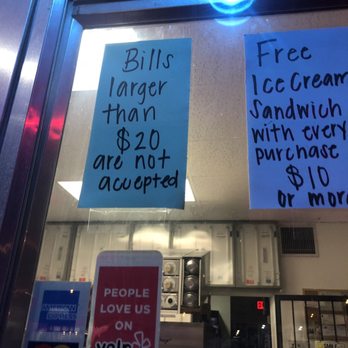 Bills
larger
than
$20
are not
accepted
Free
Ice Cream
Sandwich
with every
purchase
$10
or more
AMERICAN
EXPRESS
PEOPLE
LOVE US
ON
yelp
EXIT